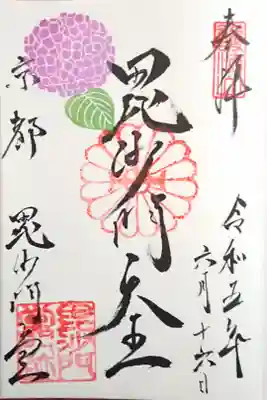 奉拝
令和五年
六月十六日
毘沙門天王
京都
毘沙門堂